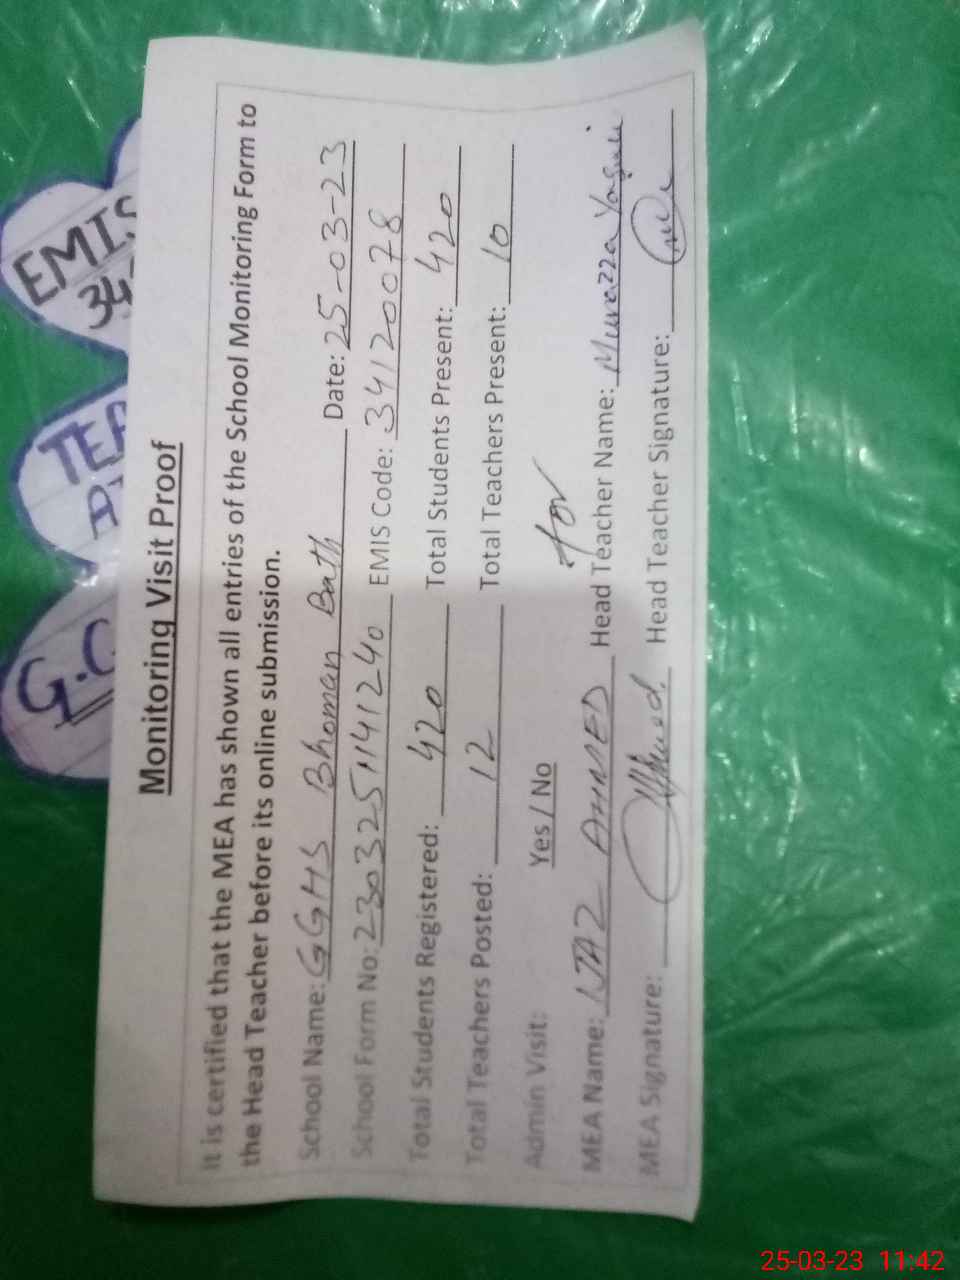 EMIS
34
TEA
G.C
Monitoring Visit Proof
It is certified that the MEA has shown all entries of the School Monitoring Form to
the Head Teacher before its online submission.
School Name: GGHS Bhoman Bath Date: 25-03-23
School Form No: 2303251141240 EMIS Code: 34120078
Total Students Registered: 420 Total Students Present: 420
Total Teachers Posted: 12 Total Teachers Present: 10
Admin Visit: Yes / No
for
MEA Name: IJAZ AHMED Head Teacher Name:
MEA Signature: Head Teacher Signature:
25-03-23 11:42